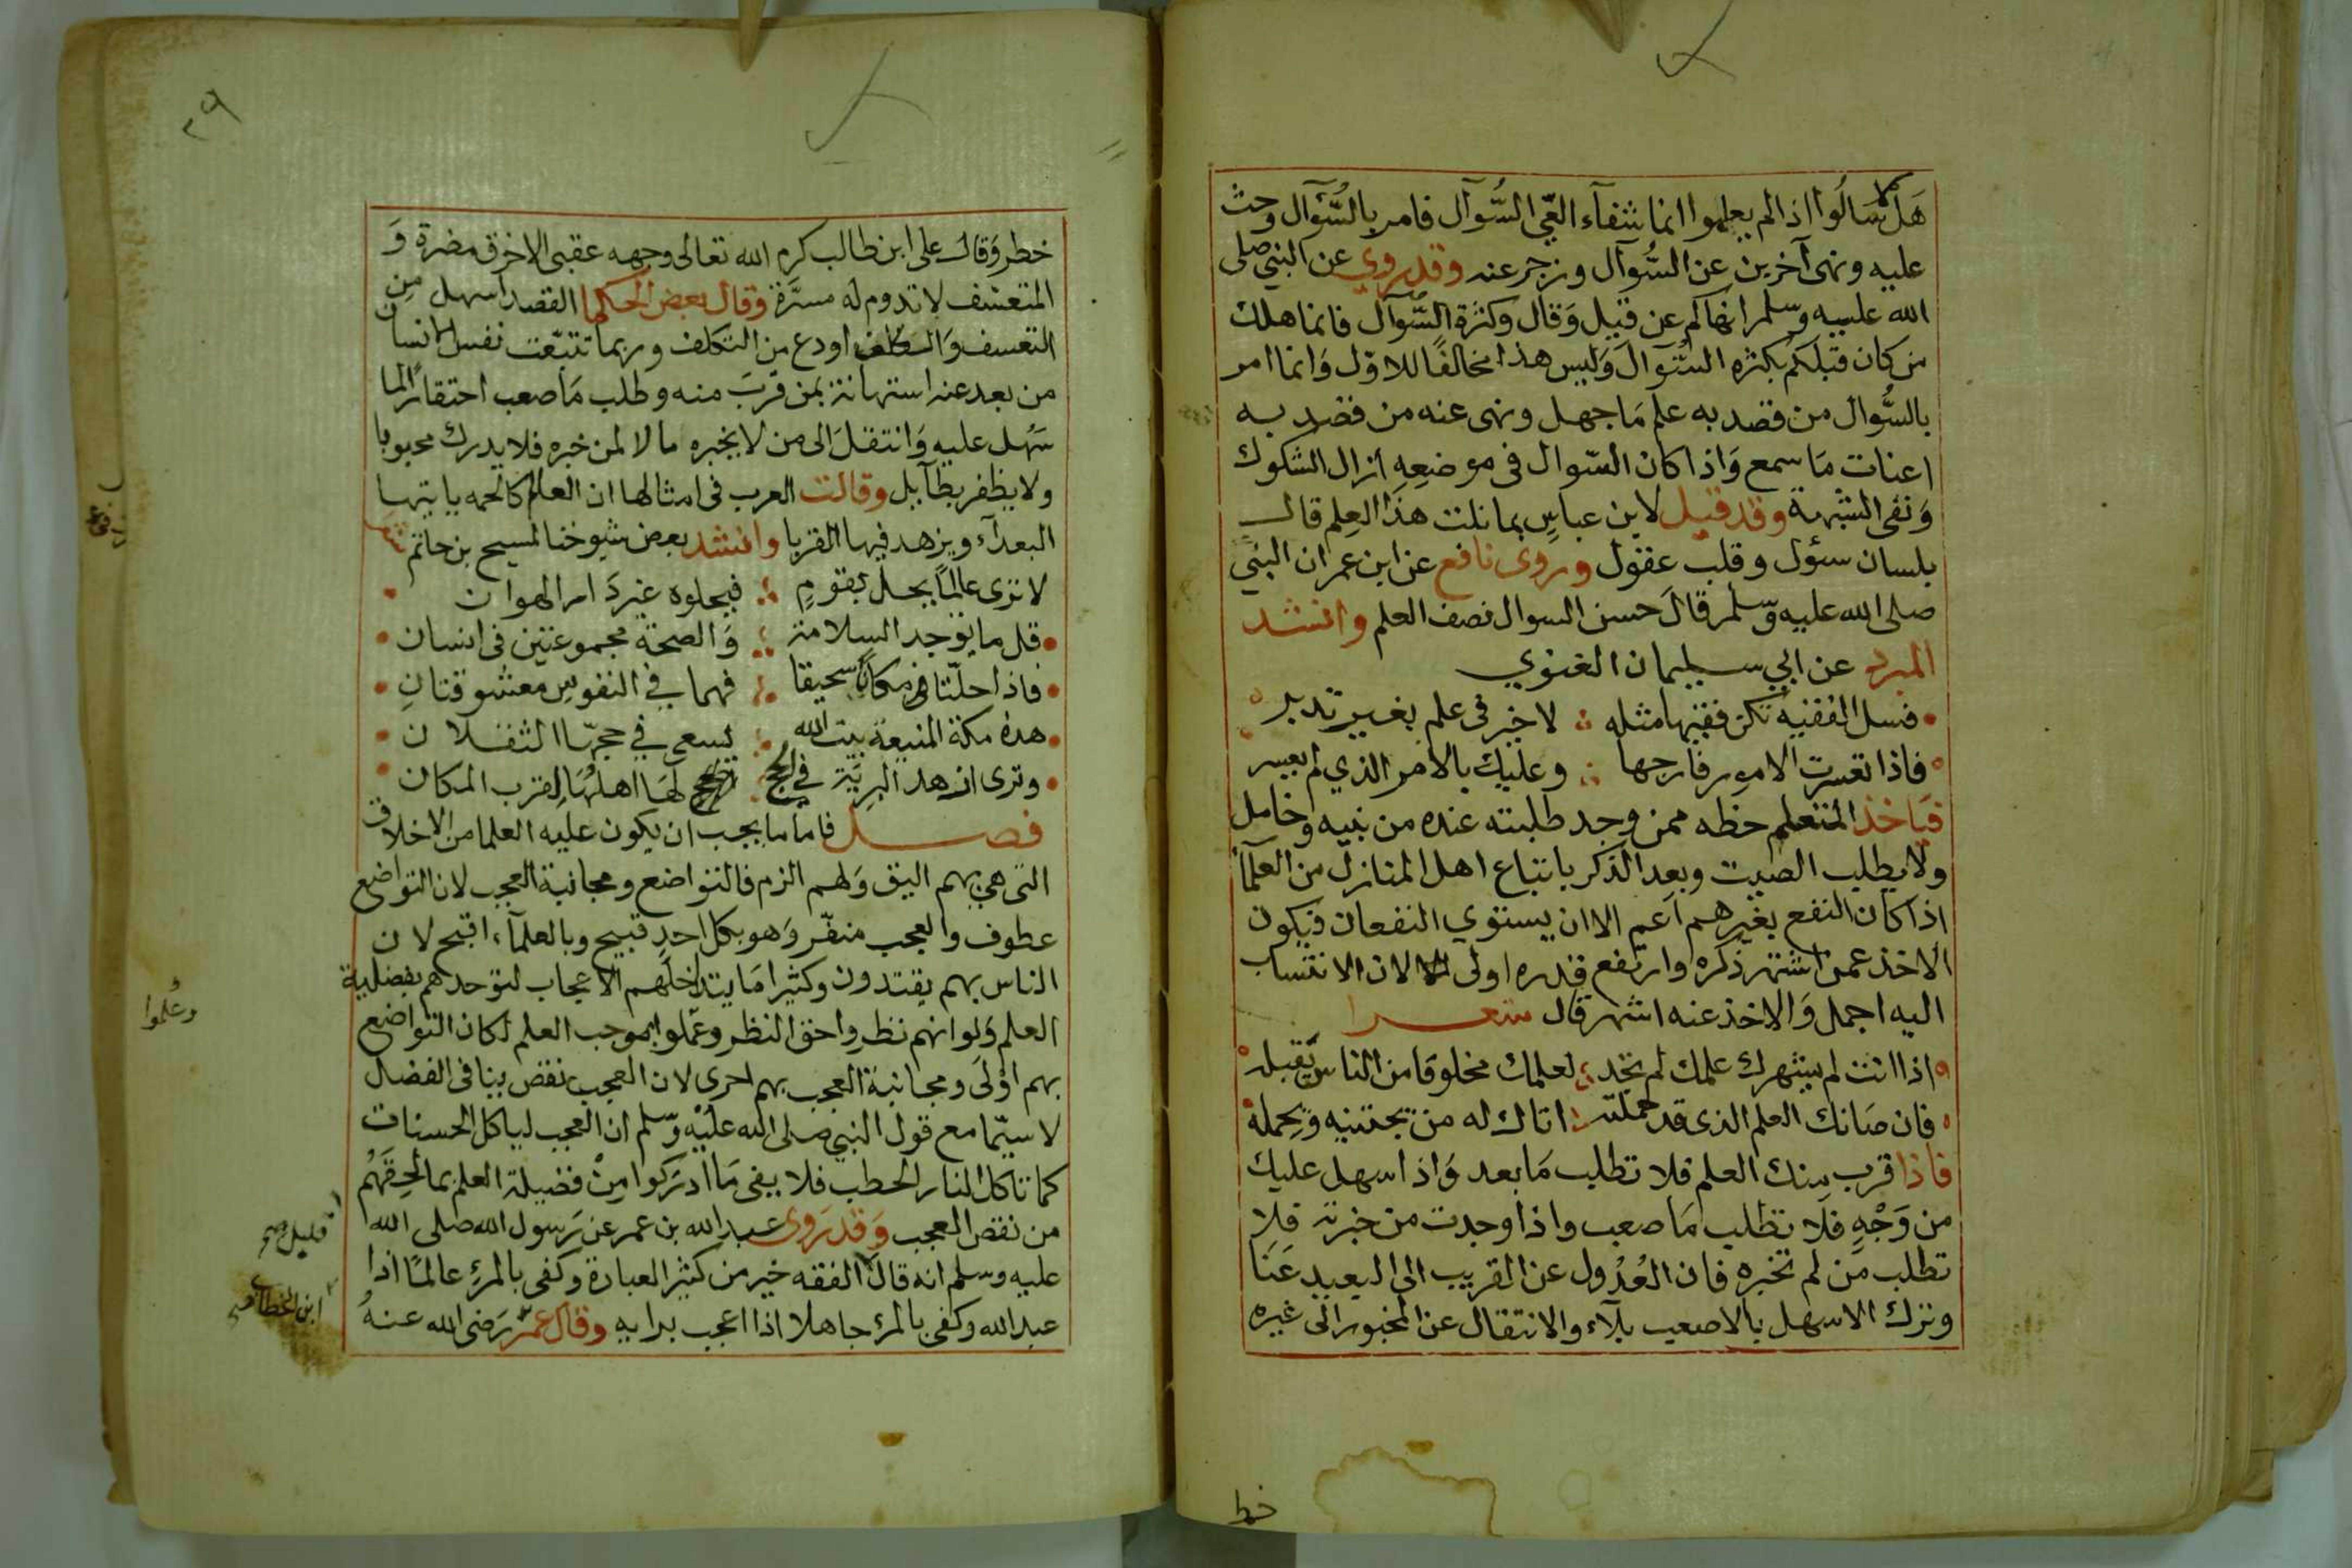 هَلّا سَالُوا اذا لم يعلموا انما شفآء العّي السُّوآل فامر بالسُّوآل وحث
عليه ونهى آخرين عن السُّوآل وزجر عنه وقد روي عن النبي صلى
الله عليه وسلم انهاكم عن قيل وَقال وكثرة السُّوآل فانما هلك
من كان قبلكم بكثره السُّوال وَليس هذا مخالفًا للاوّل وَانما امر
بالسُّوال من قصد به علم مَا جهل ونهى عنه من قصد به
اعنات مَا سمع وَاذا كان السّوال فى موضعِهِ ازال الشكوك
وَنفى الشبهة وقد قيل لابن عباسٍ بما نلت هذا العِلم قال
بلسان سئول وقلب عقول وروى نافع عن ابن عمر ان النبي
صلى الله عليه وسّلم قالَ حسن السوال نصف العلم وانشد
المبرد عن ابي سليمان الغنوي
فسل الفقيه تكن فقيها مثله لا خير فى علم بغير تدبر
فاذا تعسرت الامور فارجها وعليك بالامر الذي لم يعسر
فيَاخذ المتعلم حظه ممن وجد طلبته عنده من نبيه وخامل
ولا يطلب الصيت وبعد الذكر باتباع اهل المنازل من العلمآء
اذا كان النفع بغيرهم اعم الا ان يستوي النفعان فيكون
الاخذ عمن اشتهر ذكره وارتفع قدره اولى لان الانتساب
اليه اجمل وَالاخذ عنه اشهر قال شعرا
اذا انت لم يشهرك علمك لم تجد لعلمك مخلوقا من الناس يَقبله
فان صَانك العلم الذى قد حملته اتاك له من يجتنيه ويحمله
فاذا قرب منك العلم فلا تطلب مَا بعد وَاذا سهل عليك
من وَجْهٍ فلا تطلب مَا صعب واذا وجدت من خبرته فلا
تطلب من لم تخبره فان العُدُول عن القريب الى البعيد عَنَا
وترك الاسهل بالاصعب بلآء والانتقال عن المخبور الى غيره
خط
٢٩
خطر وَقال على ابن طالب كرم الله تعالى وجهه عقبى الاخرق مضرة وَ
المتعسف لا تدوم له مسرَّة وقال بعض الحكما القصد اسهل من
التعسف وَالكف اودع من التكلف وربما تتبّعت نفس الانسان
من بعد عنه استهانة بمن قربَ منه وطلب مَا صعب احتقارًا لما
سَهُل عليه وَانتقلَ الى من لا يخبره مالا لمن خبره فلا يدرك محبوبا
ولا يظفر بطآيل وقالت العرب فى امثالها ان العالم كالحمه ياتيها
البعدآء ويزهد فيها القربا وانشد بعض شيوخنا لمسيح بن حاتم
لا ترى عالمًا يحل بقومٍ فيحلوه غير دَار الهوان
قل ما يوجد السلامة وَالصحة مجموعتين فى انسان
فاذا حلّتا فى مكان سحيقا فهما في النفوسِ معشوقتانِ
هذه مكة المنيعة بيت الله يسعى في حجّها الثقلان
وترى ازهد البريَة في الحج لهَا اهلهَا لقرب المكان
فصل فاما ما يجب ان يكون عليه العلما من الاخلاق
التى هي بهم اليق وَلهم الزم فالتواضع ومجانبة العجب لان التواضع
عطوف والعجب منفّر وَهو بكل احدٍ قبيح وبالعلمآء اقبح لان
الناس بهم يقتدون وكثيرا مَا يتداخلهم الاعجاب لتوحدهم بفضلية
العلم وَلو انهم نظروا حق النظر وعملوا بموجب العلم لكان التواضع
بهم اوْلى ومجانبة العجب بهم احرى لان العجب نقص ينافى الفضل
لا سيّما مع قول النبي صلى الله عليْه وسّلم ان العجب لياكل الحسنات
كما تاكل النار الحطب فلا يفى مَا ادركوا مِنْ فضيلة العلم بما لحِقَهُم
من نقص العجب وَقد رَوى عبد الله بن عمر عن رَسول الله صلى الله
عليه وسلم انه قال الفقه خير من كثير العبادة وكفى بالمرءِ عالمًا اذا
عبد الله وكفى بالمرء جاهلا اذا اعجب برايه وقال عمرُ رَضى الله عنهُ
وعُلموا
قليل صح
ابن الخطاب صح